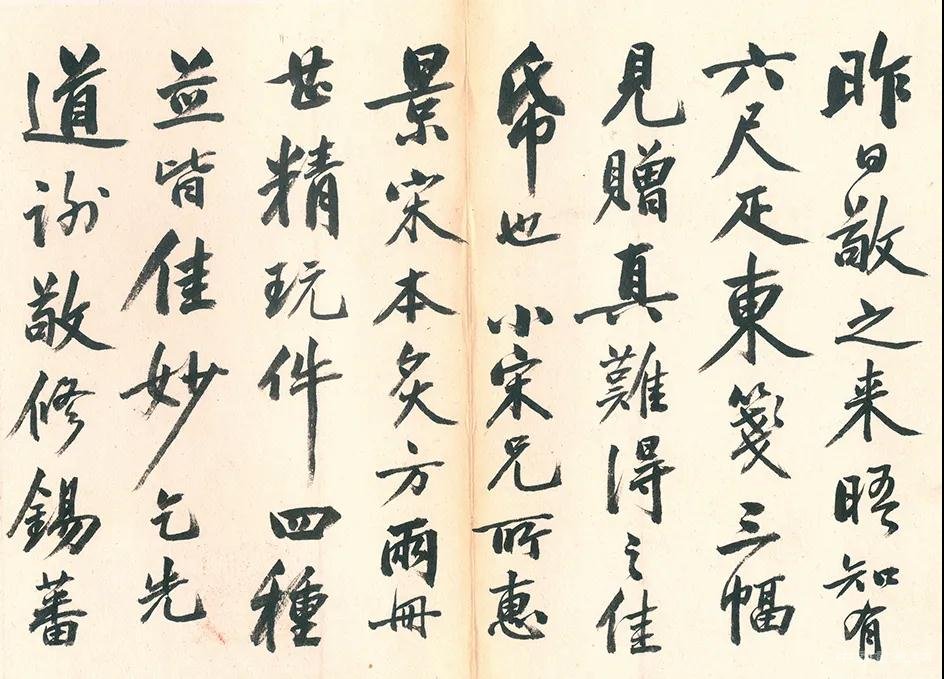 昨日敬之来晤知有
六尺疋東箋三幅
見贈真難得之佳
帋也小宋兄所惠
景宋本炙方兩冊
甚精玩件四種
並皆佳妙乞先
道谢敬修錫蕃